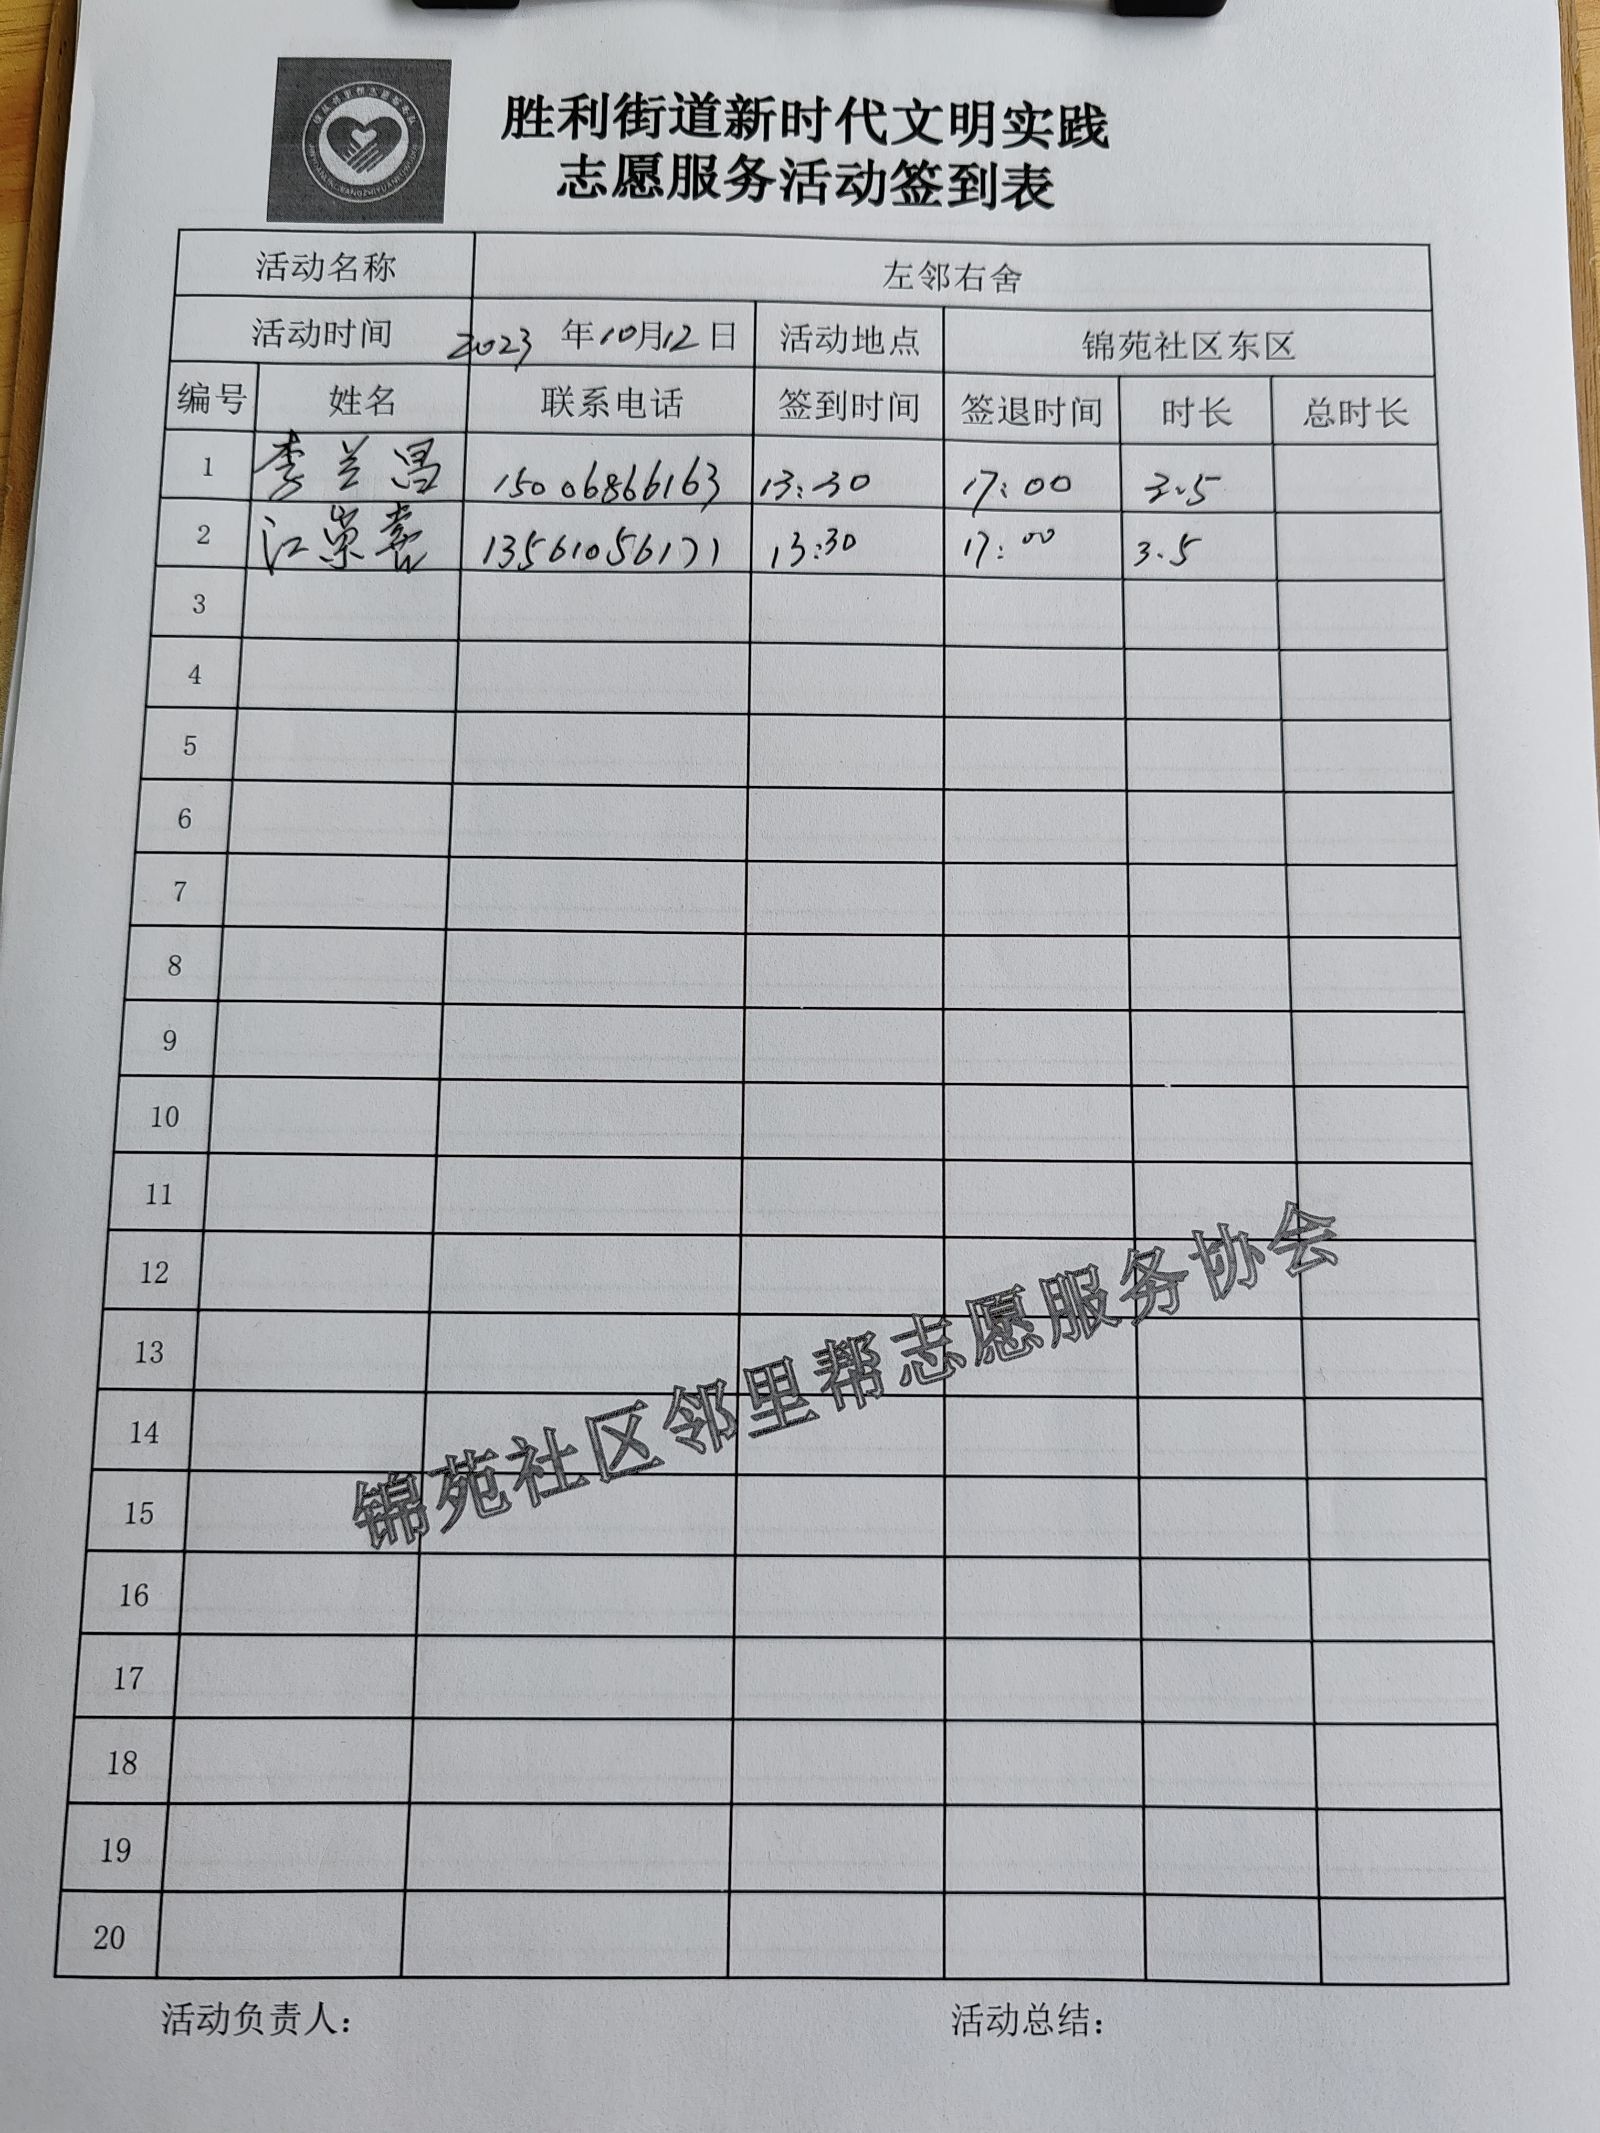 胜利街道新时代文明实践
志愿服务活动签到表
活动名称 左邻右舍
活动时间 2023 年10月12日 活动地点 锦苑社区东区
编号 姓名 联系电话 签到时间 签退时间 时长 总时长
1 李兰昌 15006866163 13:30 17:00 3.5
2 江崇喜 13561056171 13:30 17:00 3.5
3
4
5
6
7
8
9
10
11
12
13
14
15
16
17
18
19
20
锦苑社区邻里帮志愿服务协会
活动负责人： 活动总结：